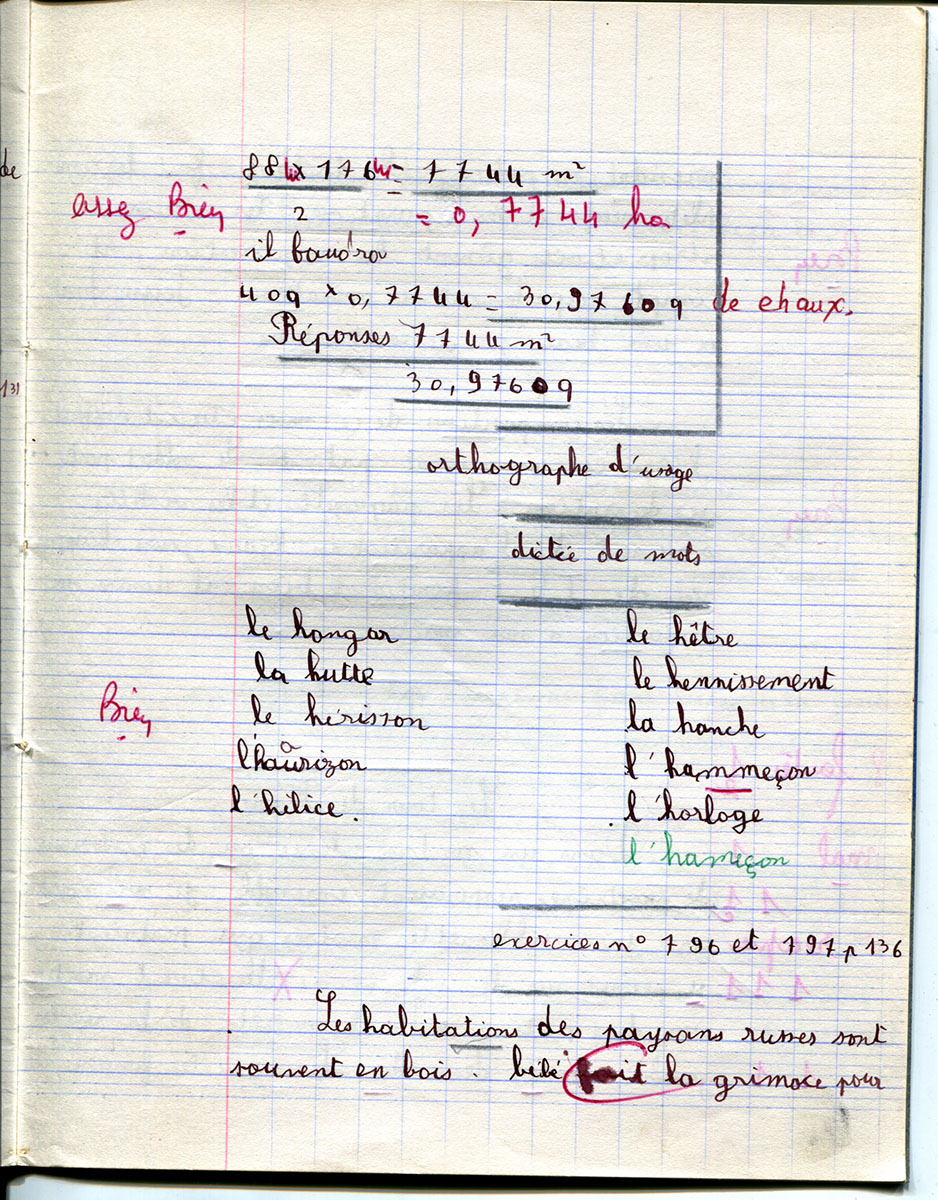 de
88m x 176m = 7744 m²
assez Bien 2 = 0,7744 ha
il faudra
40q x 0,7744 = 30,9760q de chaux.
131
Réponses 7744 m²
30,9760q
orthographe d'usage
dictée de mots
le hangar le hêtre
la hutte le hennissement
Bien le hérisson la hanche
l'haurizon o l'hammeçon
l'hélice. l'horloge
l'hameçon
exercices n° 796 et 797 p 136
Les habitations des paysans russes sont
souvent en bois. bébé fait la grimace pour